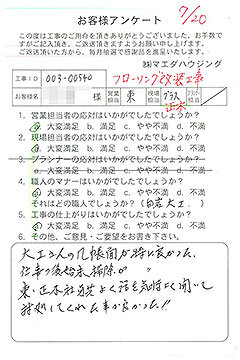 7/20
お客様アンケート
この度は工事のご用命を頂きありがとうございました。お手数で
すがご記入頂き、ご返送頂きますようお願い申し上げます。
ご返送頂いた方から、毎月抽選で感謝品を進呈いたします。
㈱マエダハウジング
工事ID 003-00540 フローリング改装工事
お客様名 様 営業担当 東 現場担当 正木 プラン
1. 営業担当者の応対はいかがでしたでしょうか?
a 大変満足 b. 満足 c. やや不満 d. 不満
2. 現場担当者の応対はいかがでしたでしょうか?
a 大変満足 b. 満足 c. やや不満 d. 不満
3. プランナーの応対はいかがでしたでしょうか?
a. 大変満足 b. 満足 c. やや不満 d. 不満
4. 職人のマナーはいかがでしたでしょうか?
a 大変満足 b. 満足 c. やや不満 d. 不満
それはどの職人でしょう? (白岩大工)
5. 工事の仕上がりはいかがでしたでしょうか?
a 大変満足 b. 満足 c. やや不満 d. 不満
6. その他、ご意見・ご要望をお書き下さい。
大工さんの几帳面が特に良かった、
仕事の後始末掃除が
東・正木社員共よく話を気持よく聞いて
対処してくれた事が良かった!!